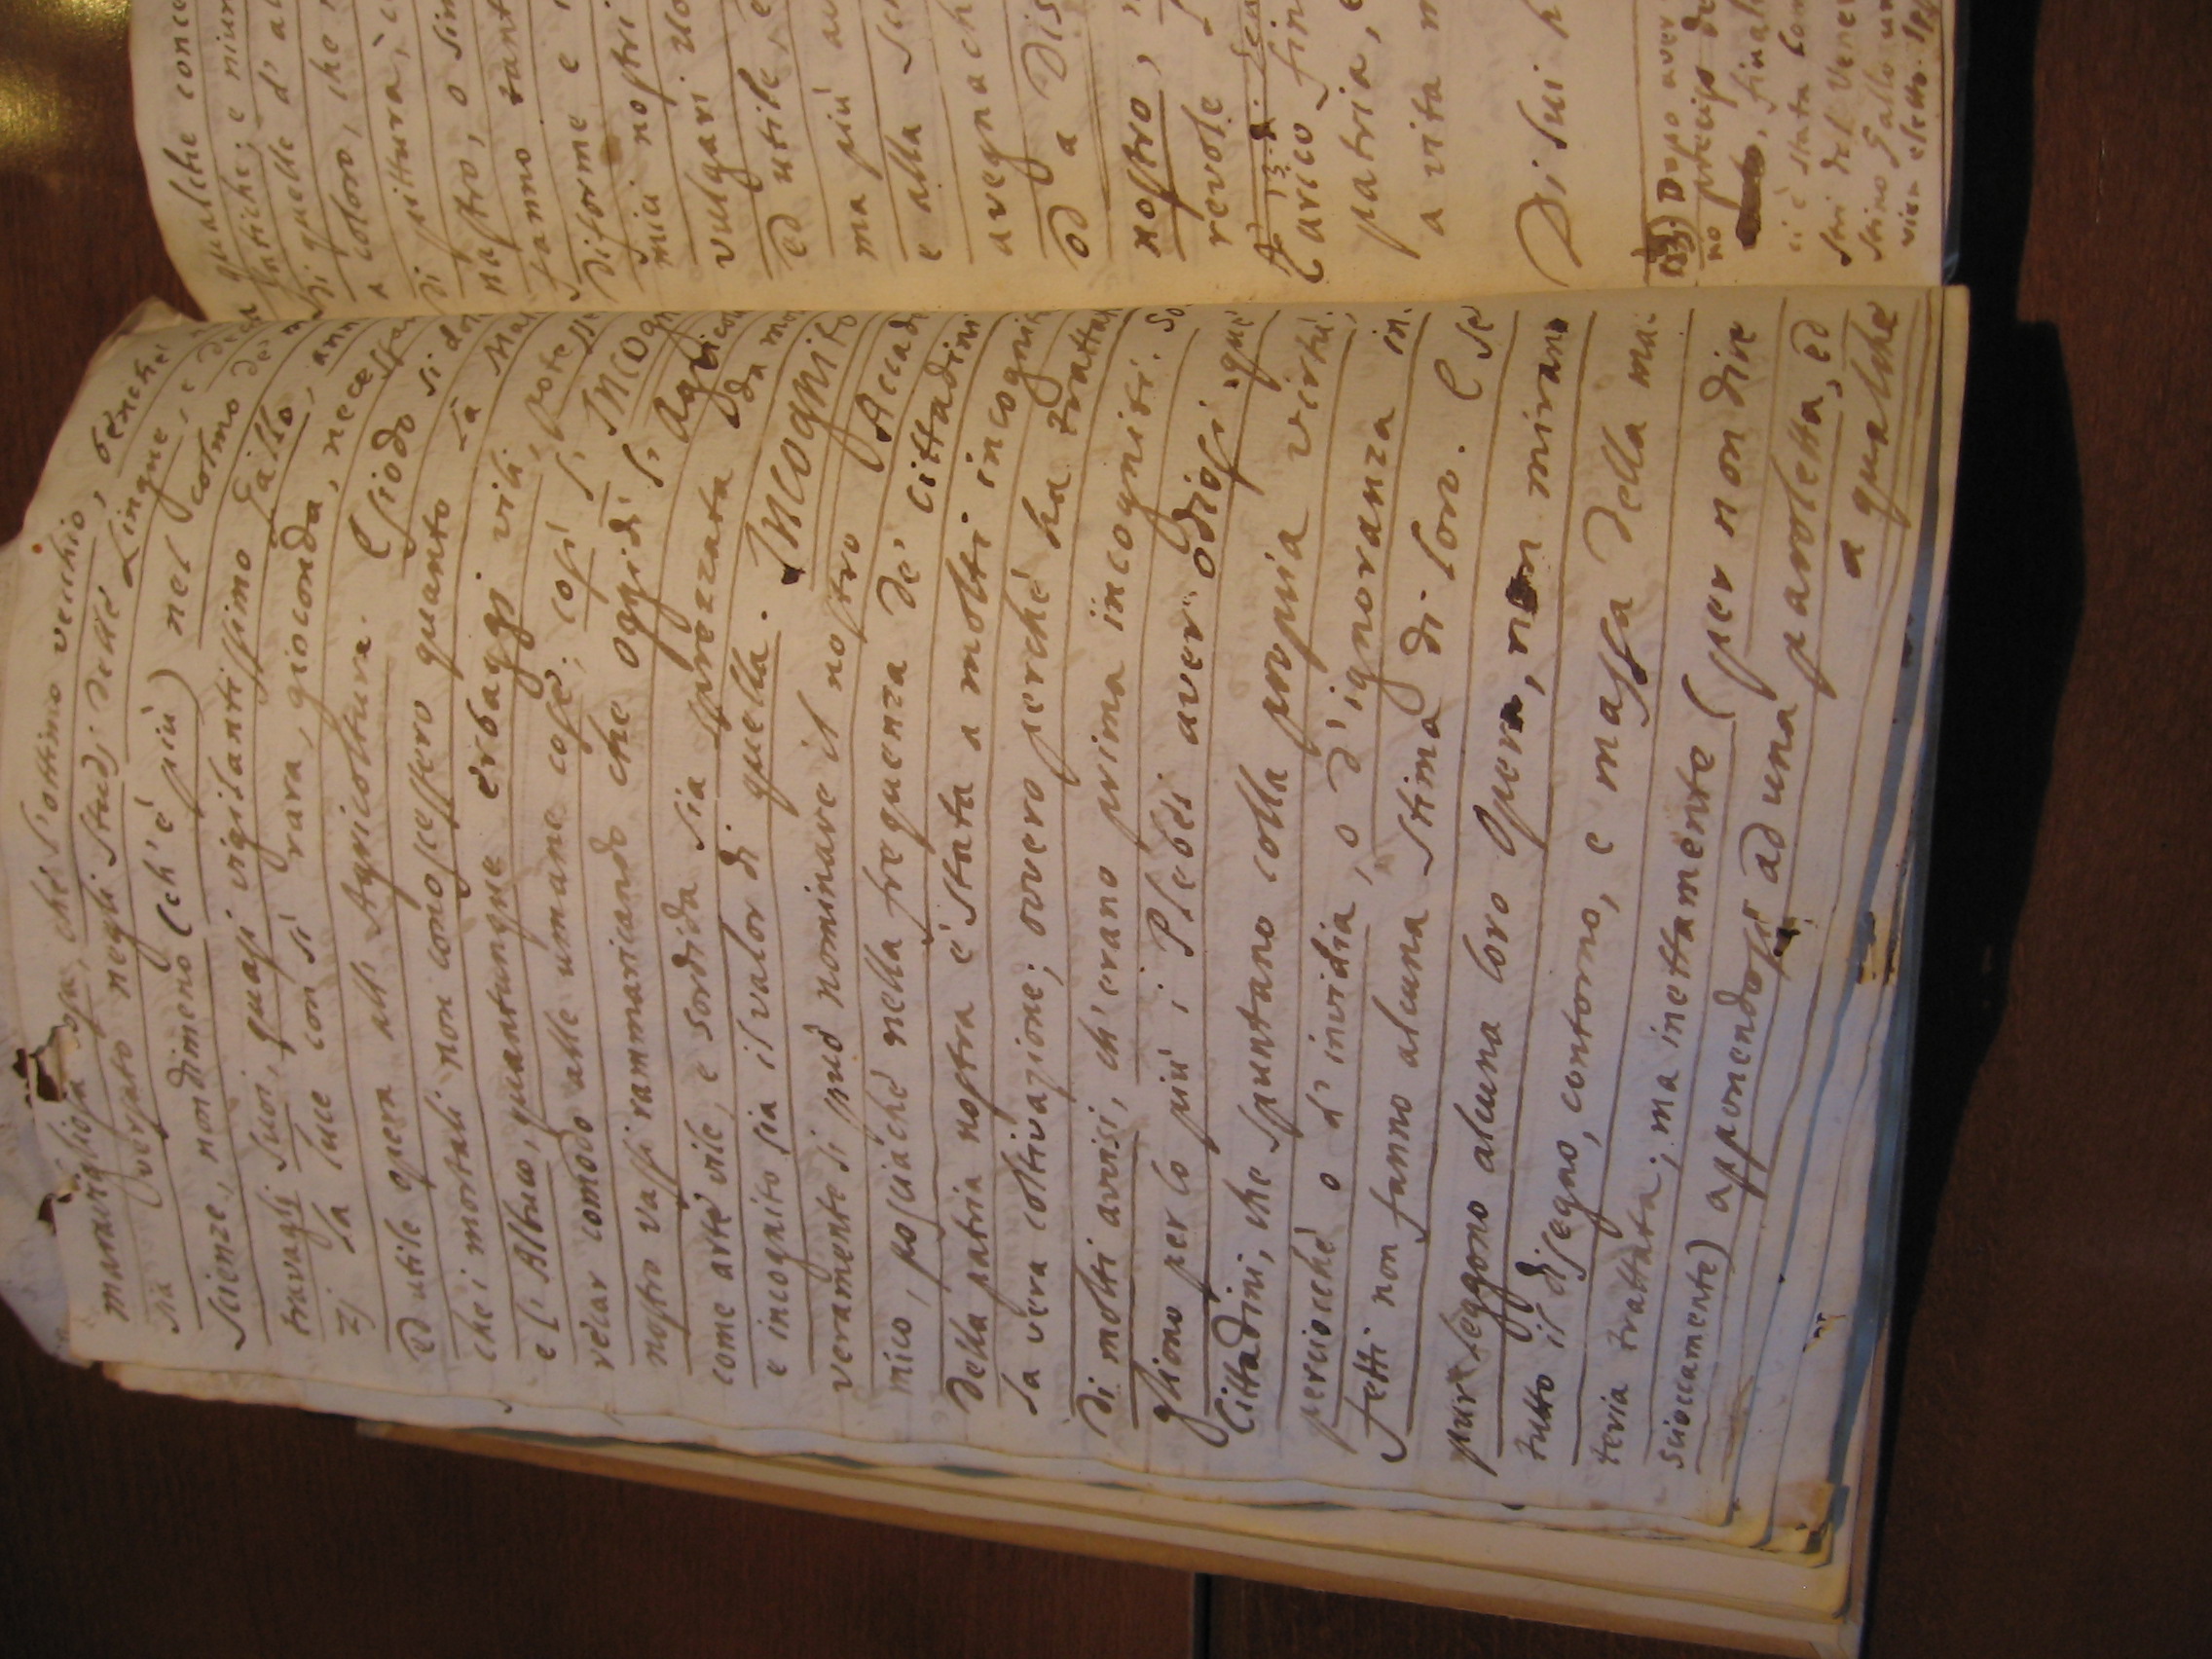 maravigliosa cosa, che l'ottimo vecchio, benchè
sia versato negli studj delle Lingue, e delle
scienze, nondimeno (ch'è più) nel colmo de'
travagli suoi, quasi vigilantissimo Gallo, an
zj la luce con sì rara, gioconda, necessaria
ed utile opera all' Agricoltura. Esiodo si dol
che i mortali non conoscessero quanto la Mal
e l'Albuco, quantunque erbaggi vili, potesse
recar comodo alle umane cose; così l' INCOGNITO
nostro vassi rammaricando che oggidì l' Agricol
come arte vile, e sordida sia sprezzata da mol
e incognito sia il valor di quella. INCOGNITO
veramente si può nominare il nostro Accade
mico, posciachè nella frequenza de' Cittadini
della patria nostra è stata a molti incognita
la vera coltivazione; ovvero perchè ha trattato
di molti avvisi, ch'erano prima incogniti. So
gliono per lo più i Plebei aver odiosi que'
Cittadini, che spuntano colla propria virtù;
perciocchè o d'invidia, o d'ignoranza in-
fetti non fanno alcuna stima di loro. E se
pur leggono alcuna loro Opera, non mirano
tutto il disegno, contorno, e massa della ma-
teria trattata; ma inettamente (per non dire
scioccamente) apponendosi ad una paroletta, ed
a qualche
qualche conce
antiche; e niun
di quelle d' al
a coloro, che
di pittura, c
nastro, o sim
fanno tant
disforme e
miei nostri
vulgari uo
ed utile, e
ma più au
e alla sci
avegnach
od a Dis
nostro,
revole
Carico fin
patria, e
a vita m
Di sui
(13) Dopo aver
no preciso de
finali
ci è stata com
stri del Vener
strino Gallo un
vien eletto